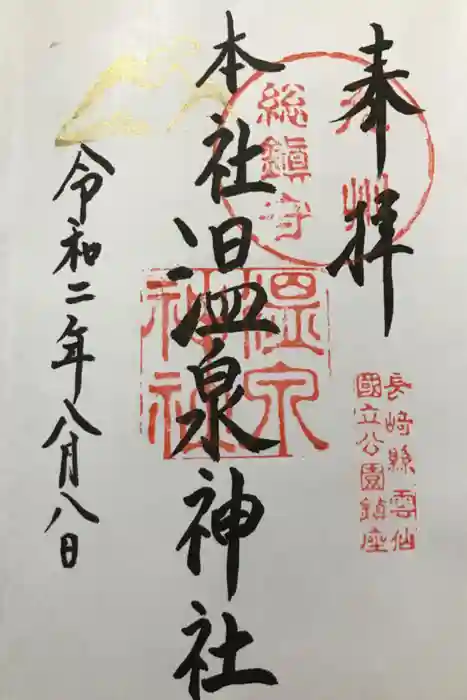 奉拝
九州
総鎮守
本社温泉神社
温泉
神社
長崎縣雲仙
國立公園鎮座
令和二年八月八日